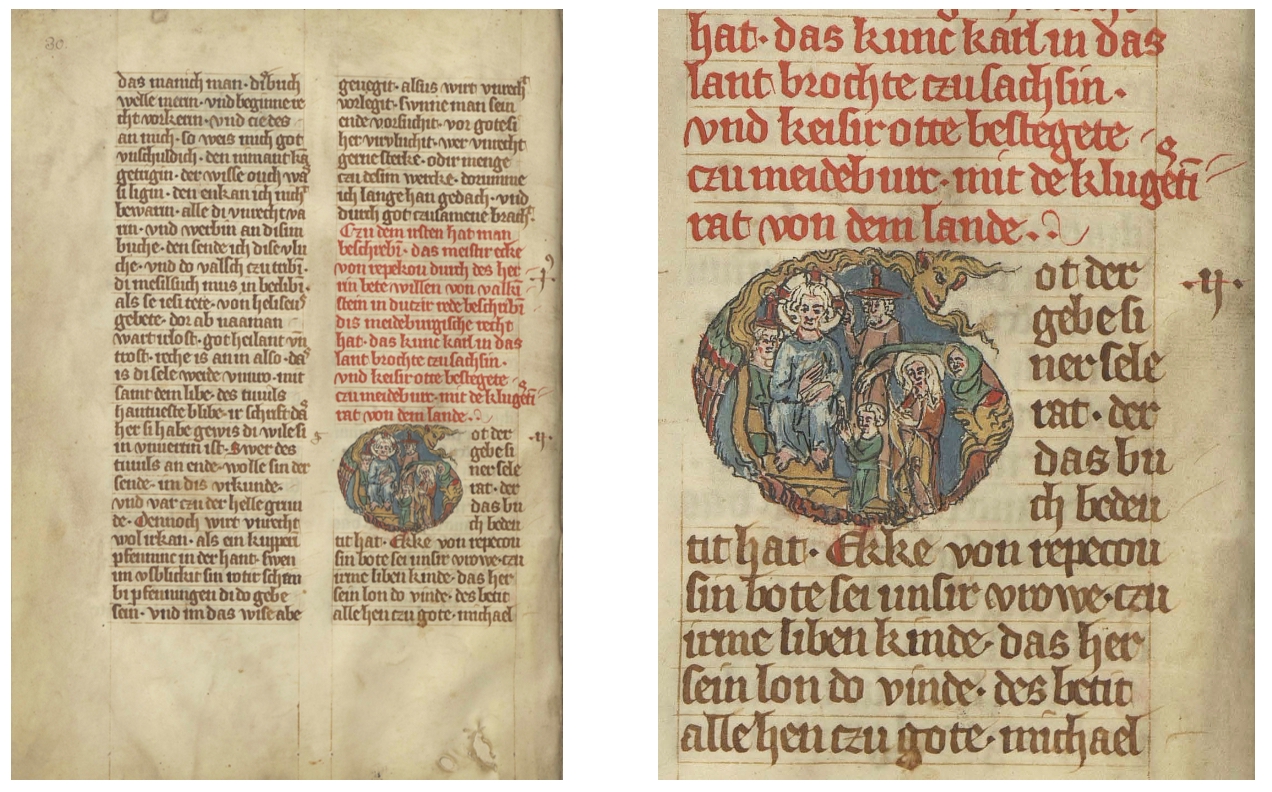 30.
das manich man · dis buch
welle mern · vnd beginne re
cht vorkern · vnd cie des
an mich · so weis mich got
vnschuldich · den nimant kan
getrigin · der wisse ouch wa
ligin · den enkan ich nicht
bewarn · alle di vnrecht va
rn · vnd werbin an disim
buche · den sende ich dise vlu
che · vnd do valsch czu tribin ·
di meselsuch mus in beclibin ·
als se iesi tete · von heliseus
gebete · dor ab naaman
wart irlost · got heilant vn
trost · iche is an in also · das
is di sele weide vnuro · mit
samt dem libe · des tuuils
hantueste blibe · ir schrift dar
her si habe gewis di wile si
in vnuertin ist · Swer des
tuuils an ende · wolle sin der
sende · im dis vrkunde ·
vnd var czu der helle grun
de · Dennoch wirt vnrecht
wol irkan · als ein kuppern
pfenninc in der hant · swen
im vsblickit sin roter schin
bi pfenningen di do gebe
sein · vnd im das wise abe
geneigit · alsus wirt vnrecht
vorlegit · swenne man sein
ende vorsuchit · vor gote si
her virvluchit · wer vnrecht
gerne sterke · odir menge
czu desim wercke · dorumme
ich lange han gedach · vnd
durch got czusamene brach
Czu dem irsten hat man
beschrebin · das meister ecke
von repekou durch des her
rin bete willen von valkin
stein in dutzir rede beschribin
dis meideburgische recht
hat · das kunc karl in das
lant brochte czu sachsin ·
vnd keisir otte bestegete
czu meideburc · mit de klugen
rat von dem lande ·
ot der
gebe si
ner sele
rat · der
das bu
ch beden
tit hat · Ekke von repecou
sin bote sei unsir vrowe · czu
irme liben kinde · das her
sein lon do vinde · des betit
alle hen czu gote · michael
· ij ·
hat · das kunc karl in das
lant brochte czu sachsin ·
vnd keisir otte bestegete
czu meideburc · mit de klugen
rat von dem lande ·
ot der
gebe si
ner sele
rat · der
das bu
ch beden
tit hat · Ekke von repecou
sin bote sei unsir vrowe · czu
irme liben kinde · das her
sein lon do vinde · des betit
alle hen czu gote · michael
· ij ·